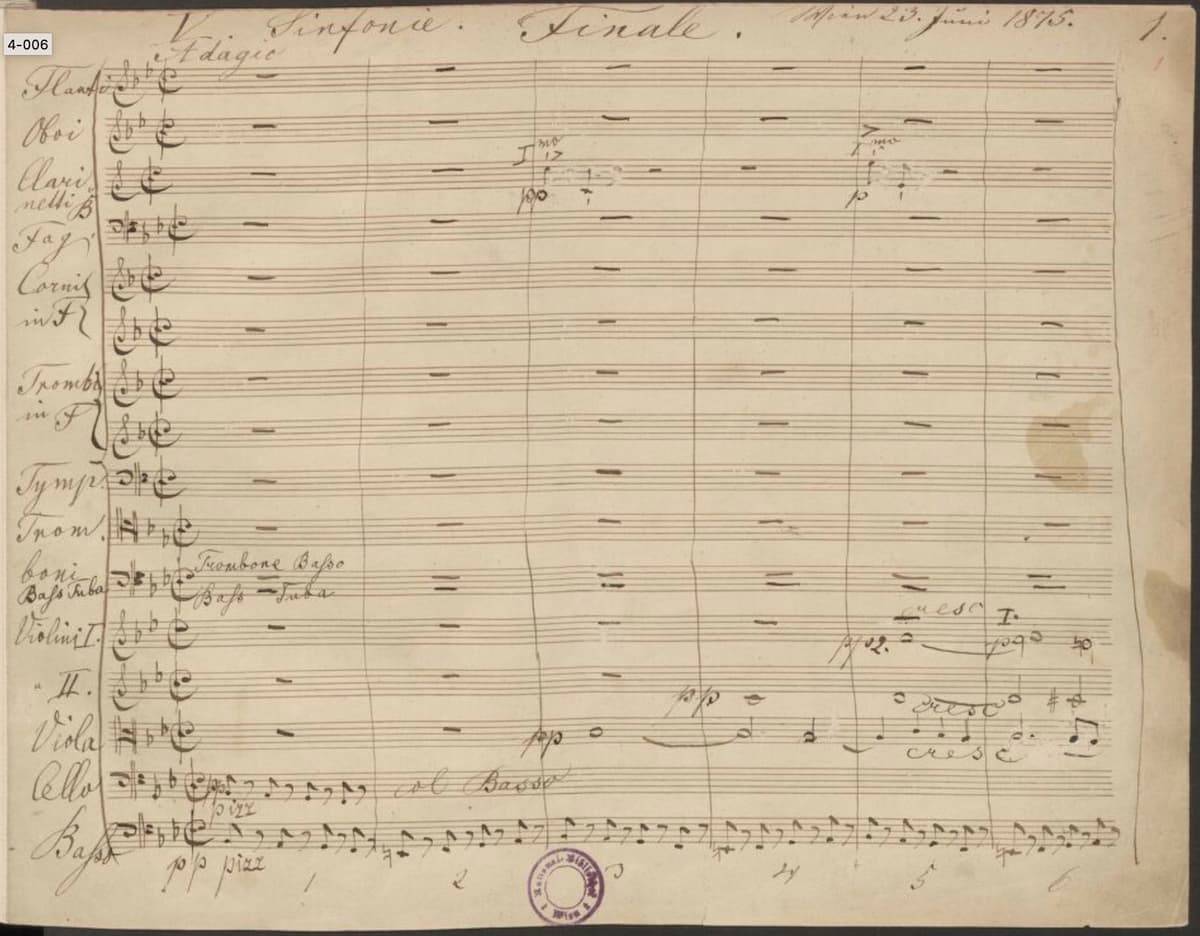 4-006
V Sinfonie. Finale. Wien 23. Juni 1875. 1.
1
Adagio
Flauti
Oboi
Imo Imo
Clari
netti B
pp p
Fag
Corni
in F
Trombi
in F
Tymp.
Trom.
boni
Trombone Basso
Bass Tuba
Bass Tuba
cresc I.
Violini I.
pp 2. p
" II.
pp cresc
Viola
pp cresc
Cello
pp col Basso
pizz
Bass
pp pizz
1 2 3 4 5 6